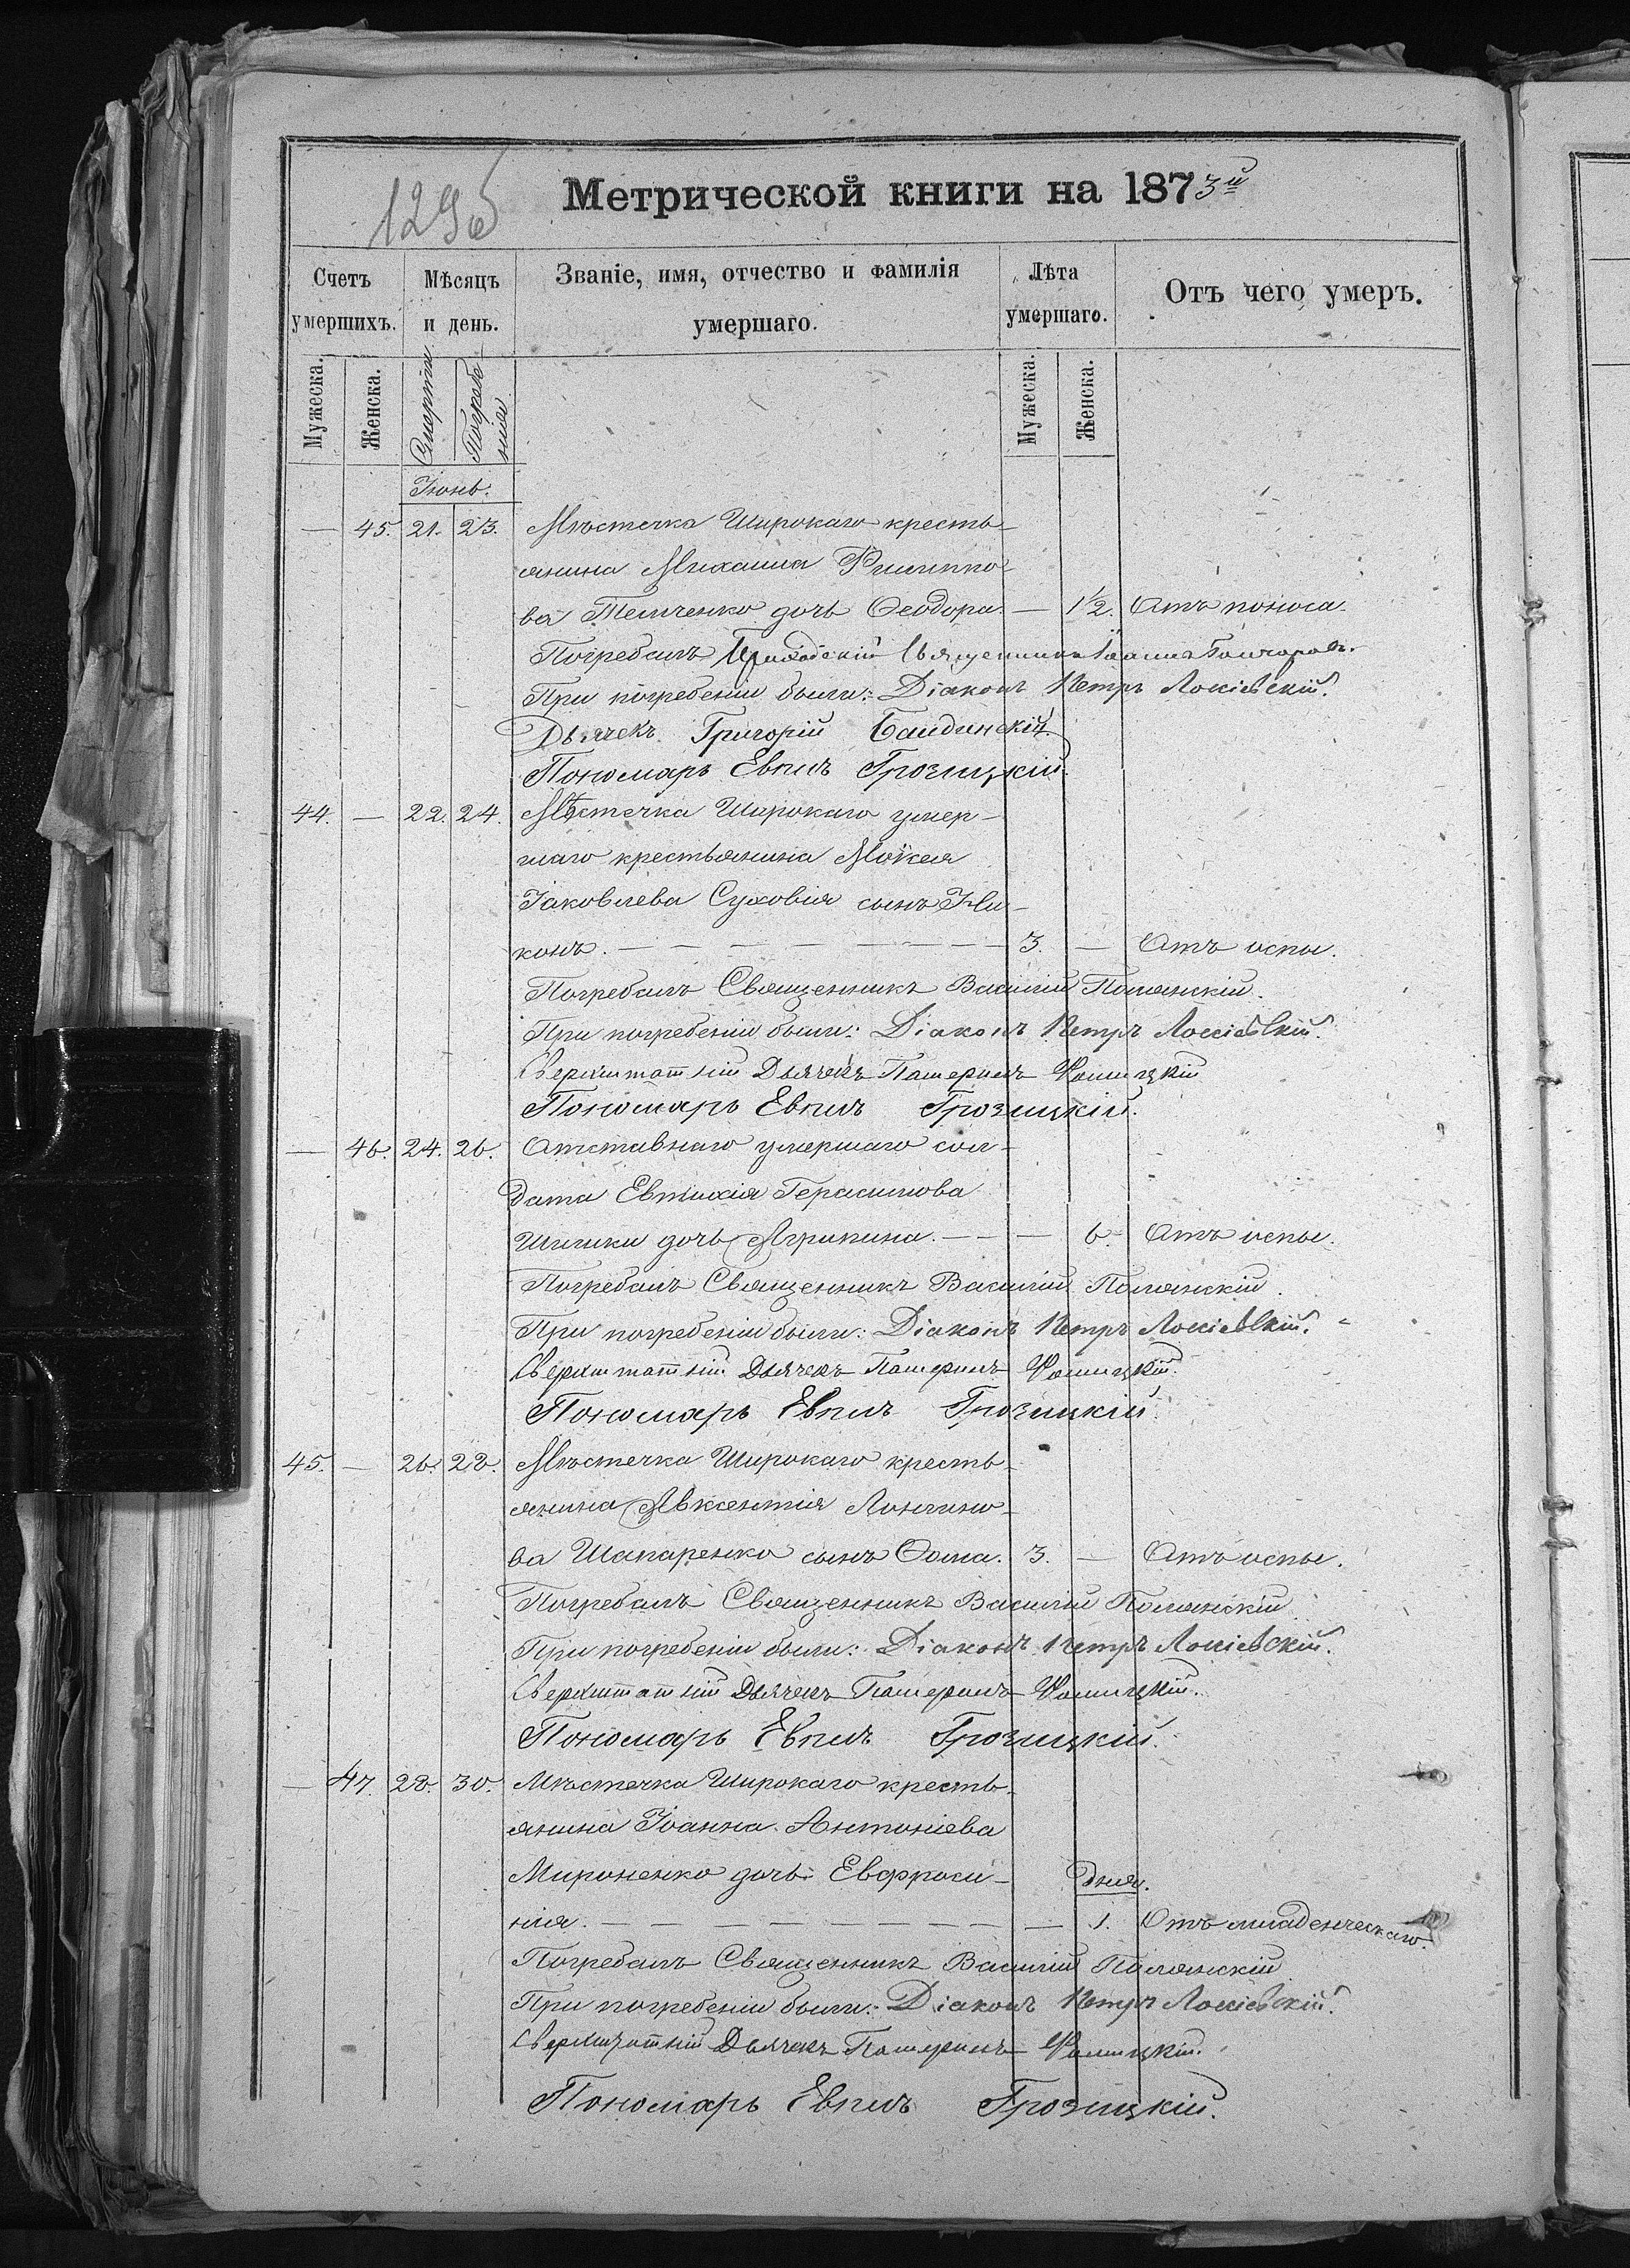 129б
Метрической книги на 1873й
Счетъ умершихъ.
Мѣсяцъ и день.
Званіе, имя, отчество и фамилія умершаго.
Лѣта умершаго.
Отъ чего умеръ.
Мужеска. Женска. Смерти Погребенія Мужеска. Женска.
Іюнь.
— 45. 21. 23. Мѣстечка Широкаго кресть-
янина Михаила Филиппо-
ва Темченко дочь Ѳеодора. — 1½. Отъ поноса.
Погребалъ Приходскій Священникъ Іоаннъ Гончаровъ.
При погребеніи были: Діаконъ Петръ Локіевскій.
Дьячекъ Григорій
Пономарь Евплъ Грозицкій.
44. — 22. 24. Мѣстечка Широкаго умер-
шаго крестьянина Мокея
Іаковлева Суховія сынъ Ни-
конъ. — — — — — — — 3. — Отъ оспы.
Погребалъ Священникъ Василій Полянскій.
При погребеніи были: Діаконъ Петръ Локіевскій.
Сверхштатній Дьячекъ
Пономарь Евплъ Грозицкій.
— 46. 24. 26. Отставнаго умершаго сол-
дата Евтихія Герасимова
дочь Агрипина. — — — 6. Отъ оспы.
Погребалъ Священникъ Василій Полянскій.
При погребеніи были: Діаконъ Петръ Локіевскій.
Сверхштатній Дьячекъ
Пономарь Евплъ Грозицкій.
45. — 26. 28. Мѣстечка Широкаго кресть-
янина Авксентія Лонгино-
ва Шапаренко сынъ Ѳома. 3. — Отъ оспы.
Погребалъ Священникъ Василій Полянскій
При погребеніи были: Діаконъ Петръ Локіевскій.
Сверхштатній Дьячекъ
Пономарь Евплъ Грозицкій.
— 47. 28. 30. Мѣстечка Широкаго кресть-
янина Іоанна Антоніева
Мироненко дочь Евфроси- Дня.
нія. — — — — — — — — 1. Отъ младенческаго.
Погребалъ Священникъ Василій Полянскій
При погребеніи были: Діаконъ Петръ Локіевскій.
Сверхштатній Дьячекъ
Пономарь Евплъ Грозицкій.